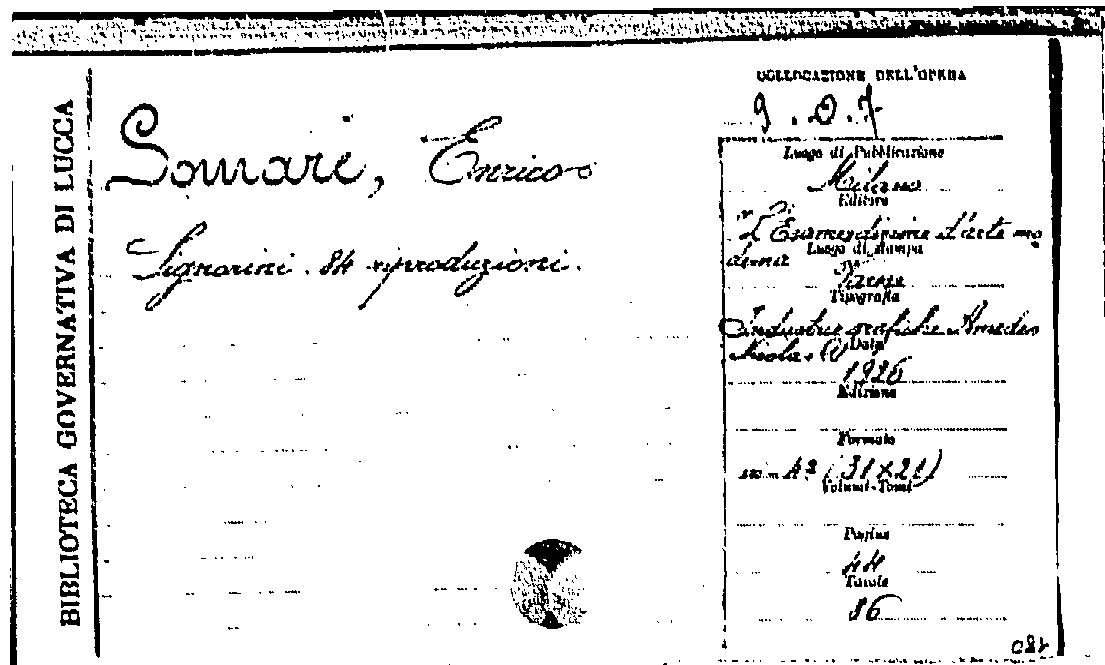 BIBLIOTECA GOVERNATIVA DI LUCCA
Somarè, Enrico
Signorini. 84 riproduzioni.
COLLOCAZIONE DELL'OPERA
9. O. 7
Luogo di Pubblicazione
Milano
Editore
"L'Esame edizioni d'arte mo
derna
Luogo di stampa
Tipografia
Industrie grafiche Amedeo
Nicola e C
Data
1926
Edizione
Formato
in - 4º (31×21)
Volumi-Tomi
Pagine
44
Tavole
86